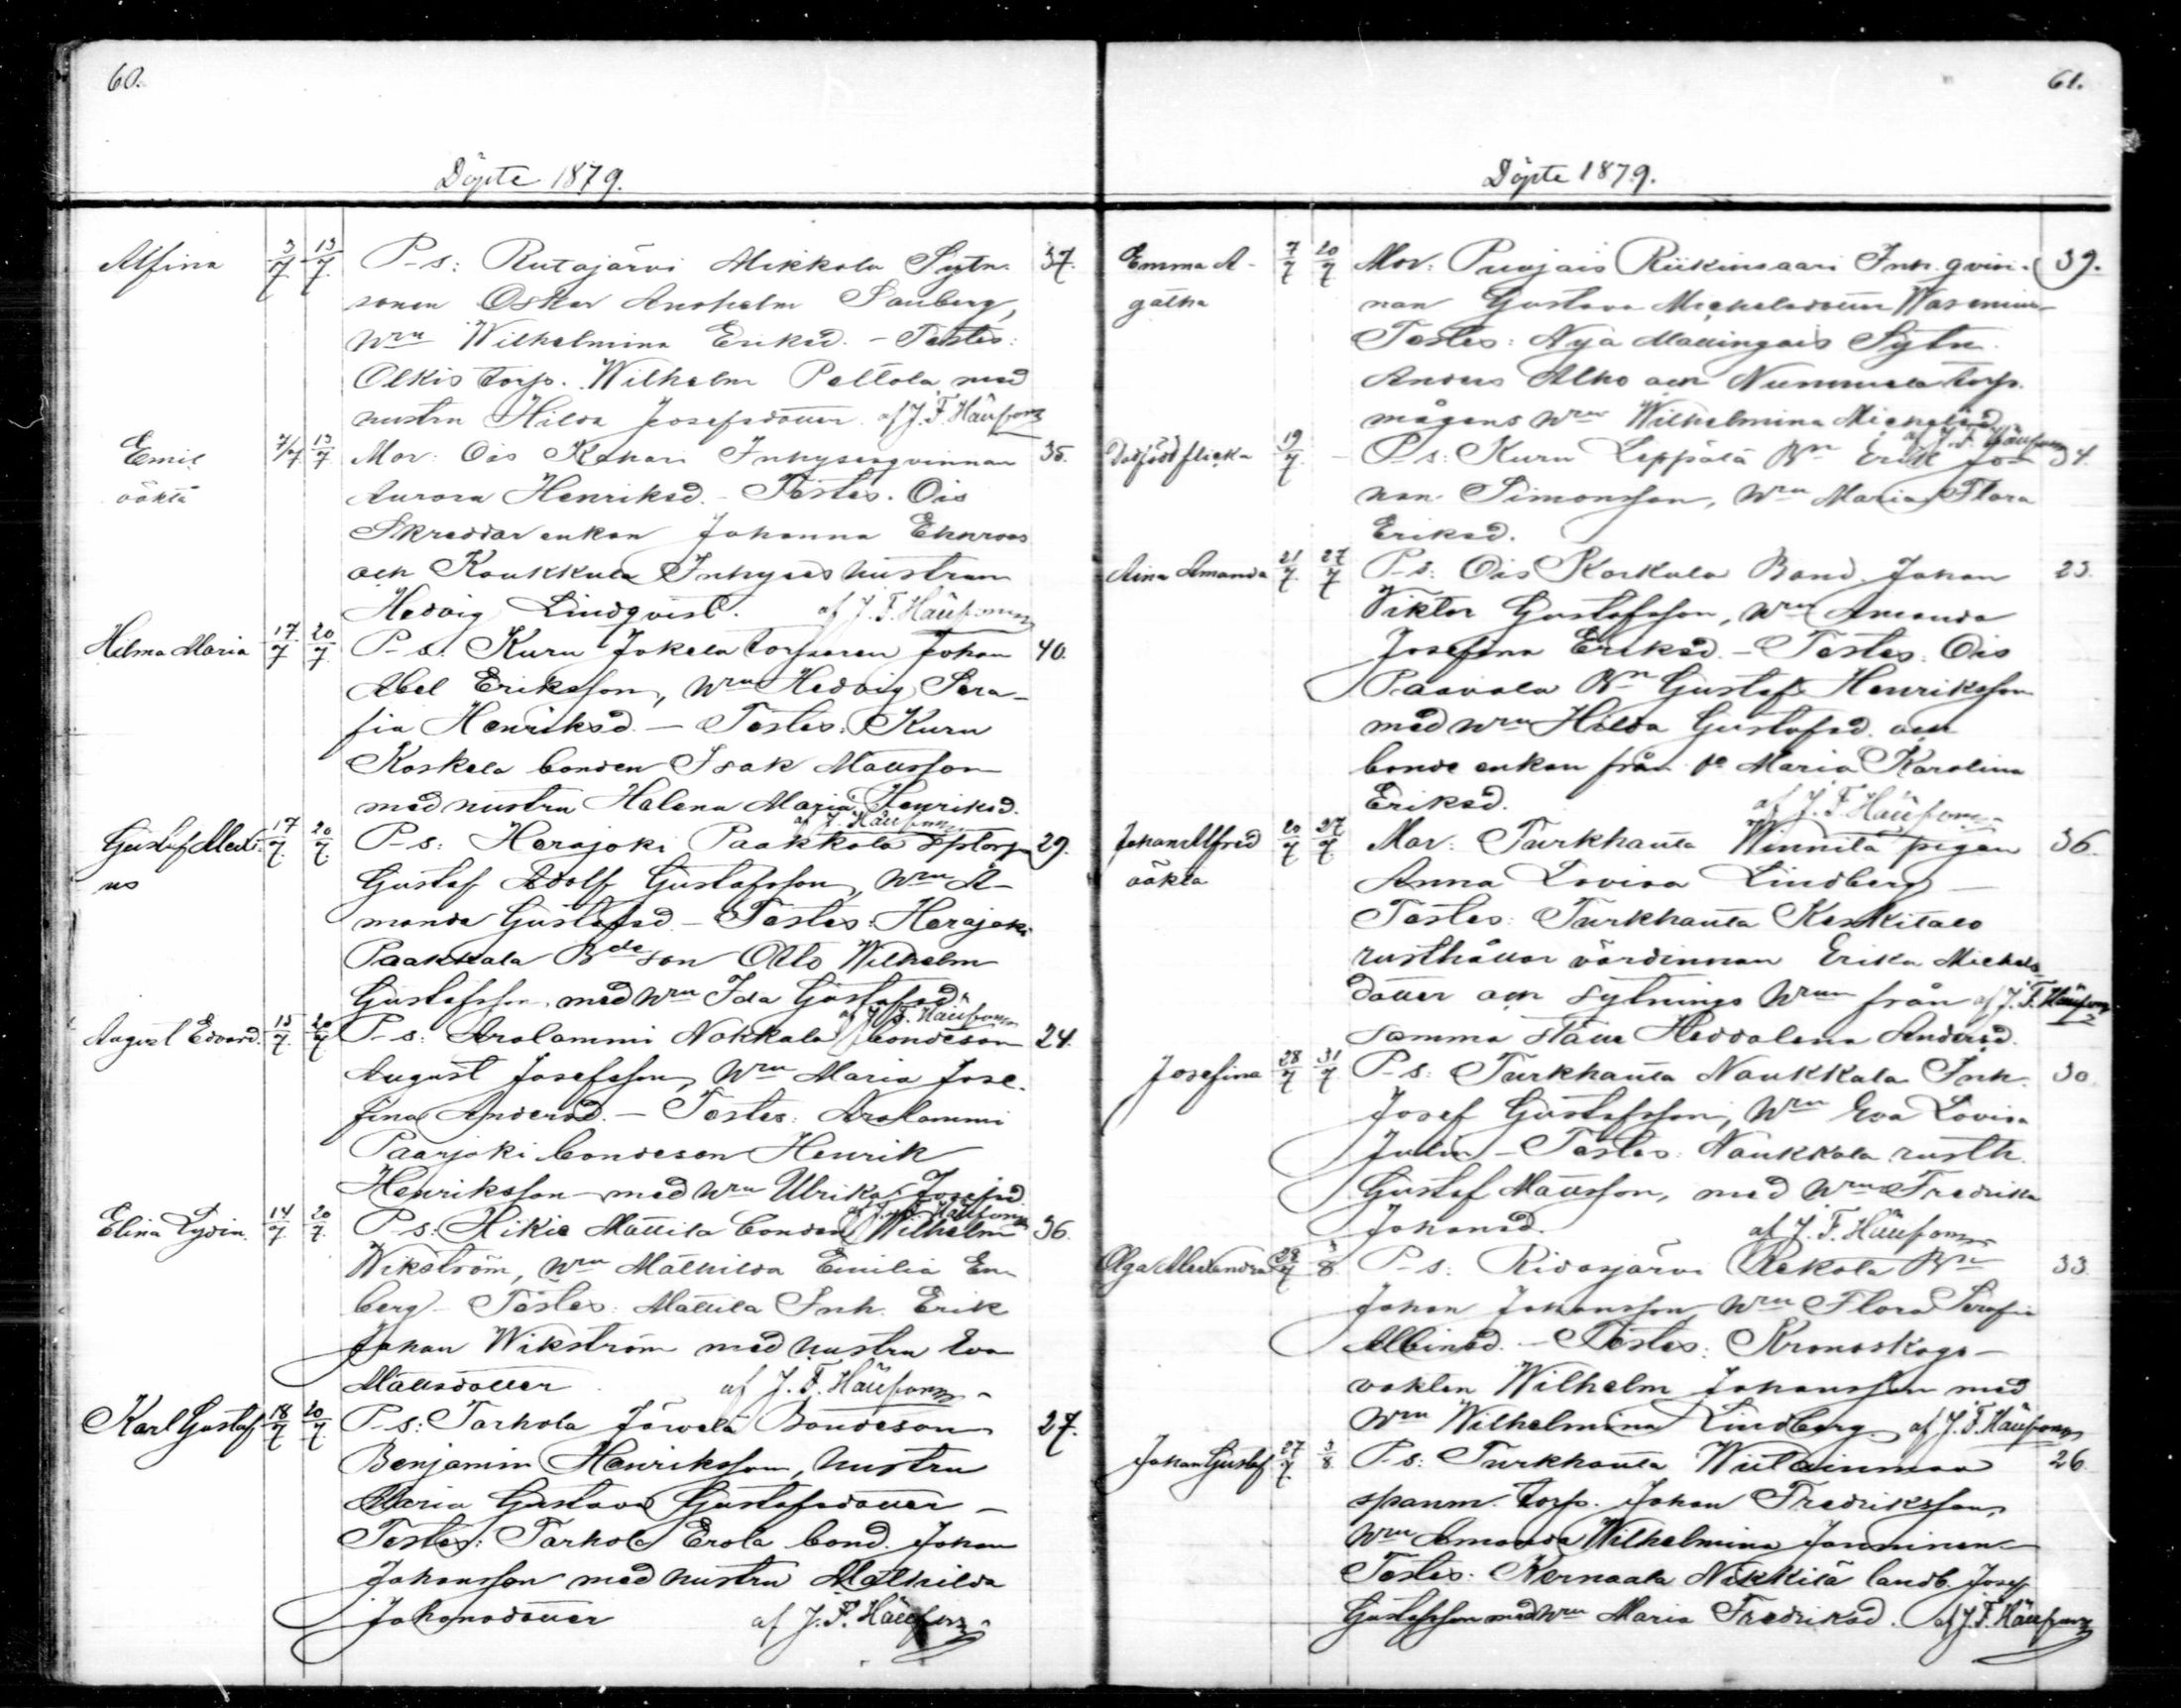 60.
Döpte 1879.
Alfina 3/7 13/7 P-s: Rutajärvi Mikkola Sytn. 37.
sonen Oskar Anshelm Sanberg,
Wrn Wilhelmina Eriksd. - Testes:
Olkis torp. Wilhelm Paltola med
hustru Hilda Josefsdotter. af J. F.
Emil 7/7 13/7 Mor: Ois Kohari Inhysesqvinnan 35.
oäkta Aurora Henriksd. - Testes. Ois
Skreddar enkan Johanna Ehnroos
och Koukkula Inhyses hustrun
Hedvig Lindqvist. af J. F.
Hilma Maria 17/7 20/7 P-s. Kuru Jokela torparen Johan 40.
Abel Eriksson, Wrn Hedvig Sera-
fia Henriksd. - Testes: Kuru
Koskela bonden Isak Mattsson
med hustru Helena Maria Henriksd.
af J. F.
Gustaf 17/7 20/7 P-s: Herajoki Paakkola 29.
us Gustaf Adolf Gustafsson, Wrn A-
manda Gustafsd. - Testes: Herajoki
Paakkala Bde son Otto Wilhelm
Gustafsson, med Wrn Ida Gustafsd.
af J. F.
August Edvard. 15/7 20/7 P-s: Arolammi Nokkala bondeson 24.
August Josefsson, Wrn Maria Jose-
fina Andersd. - Testes: Arolammi
Paarjoki bondeson Henrik
Henriksson med Wrn Ulrika Josefsd.
af J. F.
Elina Lydia. 14/7 20/7 P-s: Hikiä Mattila bonden Wilhelm 36.
Wikström, Wrn Mathilda Emilia En-
berg - Testes: Mattila Inh. Erik
Johan Wikström med hustru Eva
Mattsdotter af J. F.
Karl Gustaf 18/7 20/7 P-s: Torhola Jöwelä Bondeson 27.
Benjamin Henriksson, hustru
Maria Gustava Gustafsdotter -
Testes: Torhola Erola bond. Johan
Johansson med hustru Mathilda
Johansdotter af J. F.
61.
Döpte 1879.
Emma A- 7/7 20/7 Mor: Puujais Riikinsaari Inh. qvin- 39.
gatha nan Gustava Michelsdotter Wasenius
Testes: Nya Mallingais Sytn.
Anders Alho och Nummela torp.
mågens Wrn Wilhelmina Michelsd.
af J. F.
Dödfödd flicka 19/7 - P-s: Kuru Leppälä Bn Erik Jo- 34.
han Simonsson, Wrn Maria Flora
Eriksd.
Aina Amanda 21/7 27/7 P-s: Ois Korkala Bond. Johan 23.
Viktor Gustafsson, Wrn Amanda
Josefina Eriksd. - Testes: Ois
Paavola Bn Gustaf Henriksson
med Wrn Hilda Gustafsd. och
bonde enkan från do Maria Karolina
Eriksd. af J. F.
Johan Alfred 20/7 27/7 Mor: Turkhauta Winnilä pigan 36.
oäkta Anna Lovisa Lindberg -
Testes: Turkhauta Keskitalo
rusthållar värdinnan Erika Michels-
dotter och sytnings Wrnn från af J. F.
samma ställe Heddalena Andersd.
Josefina 28/7 31/7 P-s: Turkhauta Naukkala Inh. 30.
Josef Gustafsson, Wrn Eva Lovisa
Julin - Testes: Naukkala rusth.
Gustaf Mattsson, med Wrn Fredrika
Johansd. af J. F.
Olga Alexandra 29/7 3/8 P-s: Ridasjärvi Rekola Bn 33.
Johan Johansson Wrn Flora Serafia
Albinsd. - Testes: Kronoskogs-
vakten Wilhelm Johansson med
Wrn Wilhelmina Lindberg. af J. F.
Johan Gustaf 27/7 3/8 P-s: Turkhauta Wiitainmaa 26.
spanm. torp. Johan Fredriksson,
Wrn Amanda Wilhelmina Janninen
Testes: Kernaala Nikkilä landb. Josef
Gustafsson med Wrn Maria Fredriksd. af J. F.